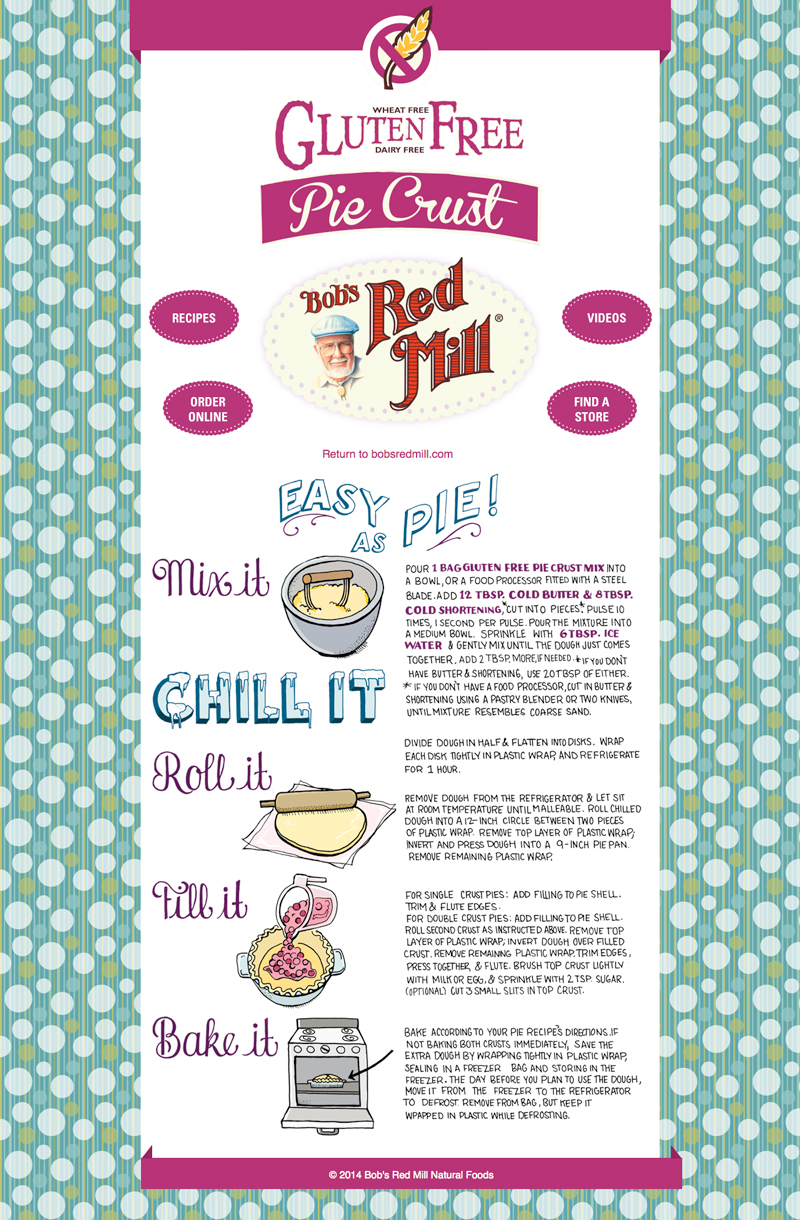 WHEAT FREE
GLUTEN FREE
DAIRY FREE
Pie Crust
Bob's
Red
Mill®
RECIPES
VIDEOS
ORDER
ONLINE
FIND A
STORE
Return to bobsredmill.com
EASY
AS PIE!
Mix it
POUR 1 BAG GLUTEN FREE PIE CRUST MIX INTO
A BOWL, OR A FOOD PROCESSOR FITTED WITH A STEEL
BLADE. ADD 12 TBSP. COLD BUTTER & 8 TBSP.
COLD SHORTENING,* CUT INTO PIECES.* PULSE 10
TIMES, 1 SECOND PER PULSE. POUR THE MIXTURE INTO
A MEDIUM BOWL. SPRINKLE WITH 6 TBSP. ICE
WATER & GENTLY MIX UNTIL THE DOUGH JUST COMES
TOGETHER. ADD 2 TBSP. MORE, IF NEEDED. * IF YOU DON'T
HAVE BUTTER & SHORTENING, USE 20 TBSP OF EITHER.
* IF YOU DON'T HAVE A FOOD PROCESSOR, CUT IN BUTTER &
SHORTENING USING A PASTRY BLENDER OR TWO KNIVES,
UNTIL MIXTURE RESEMBLES COARSE SAND.
CHILL IT
DIVIDE DOUGH IN HALF & FLATTEN INTO DISKS. WRAP
EACH DISK TIGHTLY IN PLASTIC WRAP, AND REFRIGERATE
FOR 1 HOUR.
Roll it
REMOVE DOUGH FROM THE REFRIGERATOR & LET SIT
AT ROOM TEMPERATURE UNTIL MALLEABLE. ROLL CHILLED
DOUGH INTO A 12-INCH CIRCLE BETWEEN TWO PIECES
OF PLASTIC WRAP. REMOVE TOP LAYER OF PLASTIC WRAP;
INVERT AND PRESS DOUGH INTO A 9-INCH PIE PAN.
REMOVE REMAINING PLASTIC WRAP.
Fill it
FOR SINGLE CRUST PIES: ADD FILLING TO PIE SHELL.
TRIM & FLUTE EDGES.
FOR DOUBLE CRUST PIES: ADD FILLING TO PIE SHELL.
ROLL SECOND CRUST AS INSTRUCTED ABOVE. REMOVE TOP
LAYER OF PLASTIC WRAP; INVERT DOUGH OVER FILLED
CRUST. REMOVE REMAINING PLASTIC WRAP. TRIM EDGES,
PRESS TOGETHER, & FLUTE. BRUSH TOP CRUST LIGHTLY
WITH MILK OR EGG, & SPRINKLE WITH 2 TSP. SUGAR.
(OPTIONAL) CUT 3 SMALL SLITS IN TOP CRUST.
Bake it
BAKE ACCORDING TO YOUR PIE RECIPE'S DIRECTIONS. IF
NOT BAKING BOTH CRUSTS IMMEDIATELY, SAVE THE
EXTRA DOUGH BY WRAPPING TIGHTLY IN PLASTIC WRAP,
SEALING IN A FREEZER BAG AND STORING IN THE
FREEZER. THE DAY BEFORE YOU PLAN TO USE THE DOUGH,
MOVE IT FROM THE FREEZER TO THE REFRIGERATOR
TO DEFROST. REMOVE FROM BAG, BUT KEEP IT
WPAPPED IN PLASTIC WHILE DEFROSTING.
© 2014 Bob's Red Mill Natural Foods